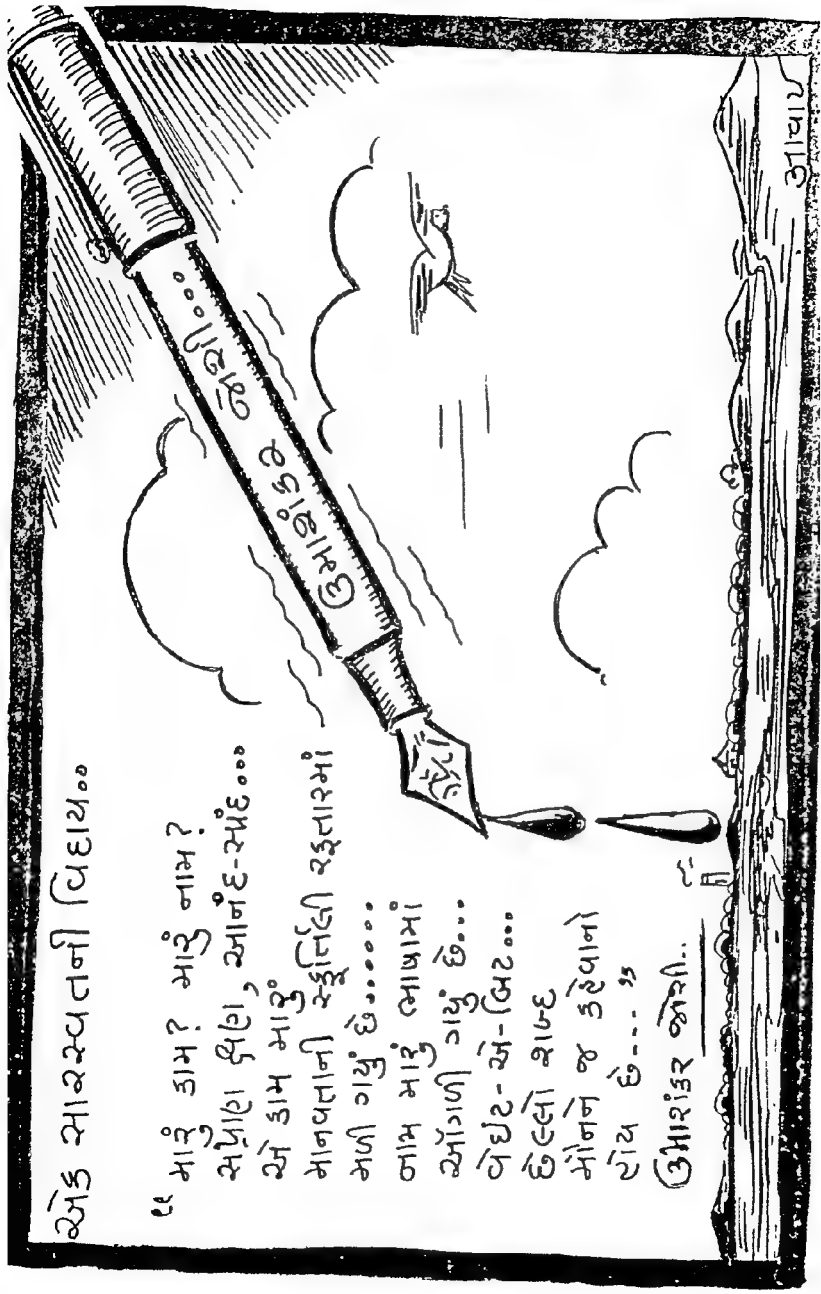 એક સારસ્વતની વિદાય..
“મારું કામ? મારું નામ?
સપ્રાણ ક્ષણ, આનંદ-સ્પંદ...
એ કામ મારું
માનવતાની સ્ફૂર્તિલી રફતારમાં
મળી ગયું છે......
નામ મારું ભાષામાં
ઓગળી ગયું છે...
વેઇટ-એ-બિટ...
છેલ્લો શબ્દ
મૌનને જ કહેવાનો
હોય છે...”
ઉમાશંકર જોશી..
ઉમાશંકર જોશી...